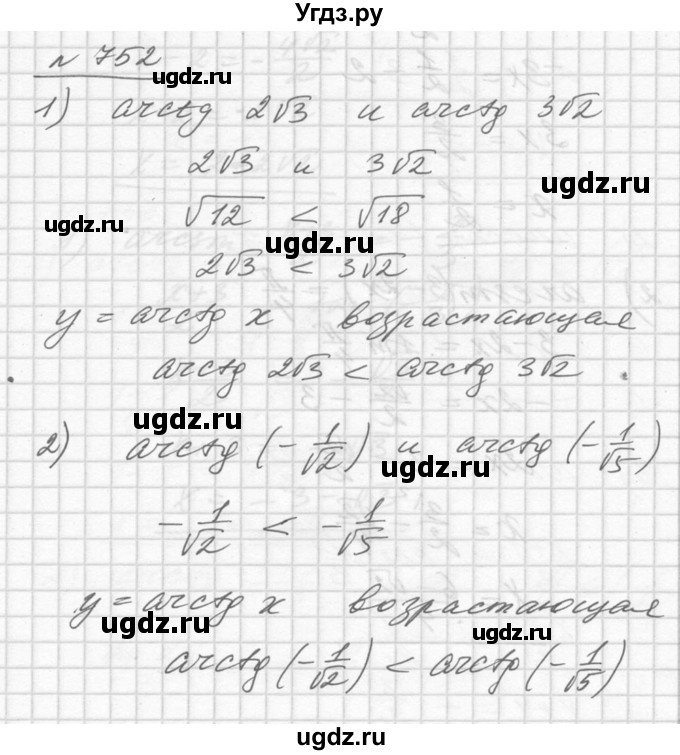 Угдз.ру
№ 752
ugdz.ru
1) arctg 2√3 и arctg 3√2
ugdz.ru
2√3 и 3√2
ugdz.ru
√12 < √18
ugdz.ru
ugdz.ru
2√3 < 3√2
ugdz.ru
y = arctg x возрастающая
arctg 2√3 < arctg 3√2.
ugdz.ru
2) arctg (-1/√2) и arctg (-1/√5)
ugdz.ru
-1/√2 < -1/√5
y = arctg x возрастающая
ugdz.ru
ugdz.ru
arctg (-1/√2) < arctg (-1/√5)
ugdz.ru
ugdz.ru